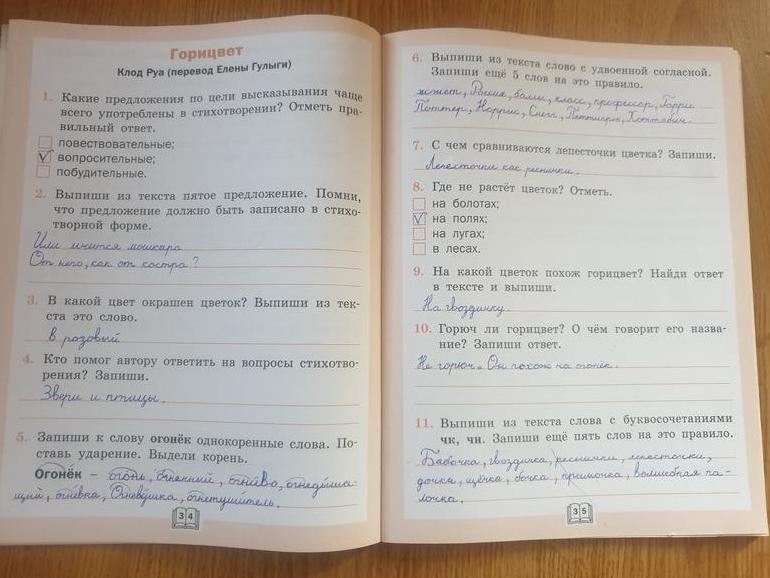 Горицвет
Клод Руа (перевод Елены Гулыги)
1. Какие предложения по цели высказывания чаще
всего употреблены в стихотворении? Отметь пра-
вильный ответ.
повествовательные;
вопросительные;
побудительные.
2. Выпиши из текста пятое предложение. Помни,
что предложение должно быть записано в стихо-
творной форме.
Или мчится мошкара
От него, как от костра?
3. В какой цвет окрашен цветок? Выпиши из тек-
ста это слово.
В розовый
4. Кто помог автору ответить на вопросы стихотво-
рения? Запиши.
Звери и птицы.
5. Запиши к слову огонёк однокоренные слова. По-
ставь ударение. Выдели корень.
Огонёк – огонь, огненный, огниво, огнедыша-
щий, огнёвка, Огневушка, огнетушитель.
34
6. Выпиши из текста слово с удвоенной согласной.
Запиши ещё 5 слов на это правило.
жжет, Россия, балл, класс, профессор, Гарри
Поттер, Норрис, Снегг, Петтигрю, Хоттабыч.
7. С чем сравниваются лепесточки цветка? Запиши.
Лепесточки как реснички.
8. Где не растёт цветок? Отметь.
на болотах;
на полях;
на лугах;
в лесах.
9. На какой цветок похож горицвет? Найди ответ
в тексте и выпиши.
На гвоздичку.
10. Горюч ли горицвет? О чём говорит его назва-
ние? Запиши ответ.
Не горюч. Он похож на огонек.
11. Выпиши из текста слова с буквосочетаниями
чк, чн. Запиши ещё пять слов на это правило.
Бабочка, гвоздичка, реснички, лепесточки,
дочка, щёчка, бочка, примочка, волшебная па-
лочка.
35